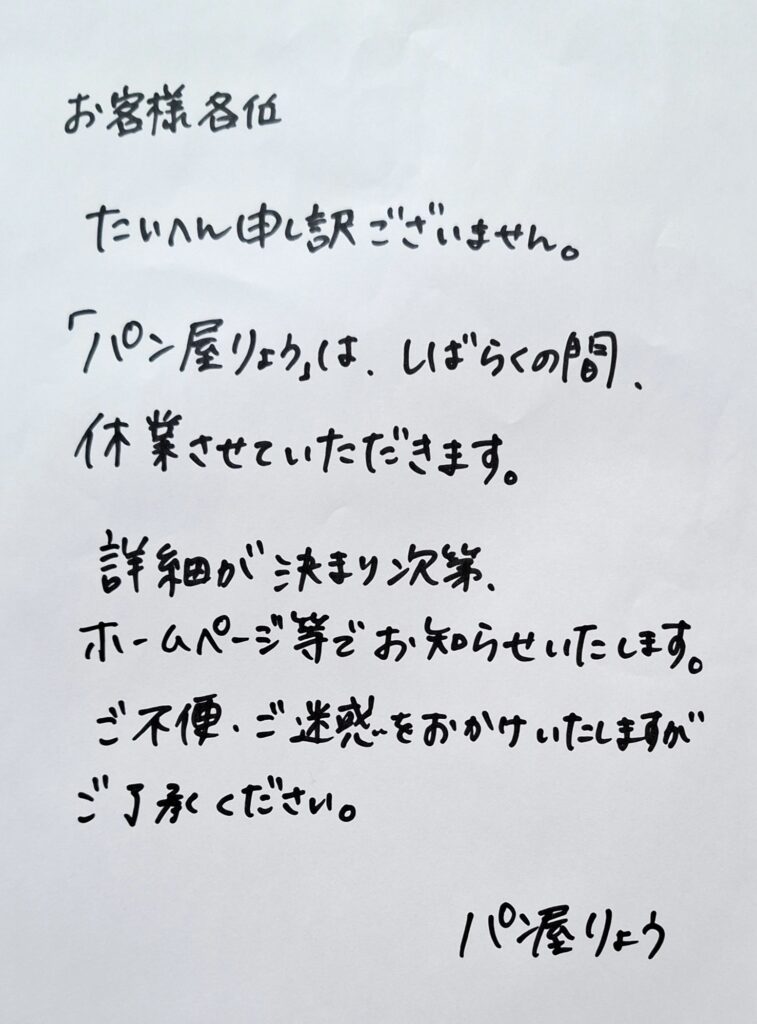 お客様各位
たいへん申し訳ございません。
「パン屋りょう」は、しばらくの間、
休業させていただきます。
詳細が決まり次第、
ホームページ等でお知らせいたします。
ご不便・ご迷惑をおかけいたしますが
ご了承ください。
パン屋りょう